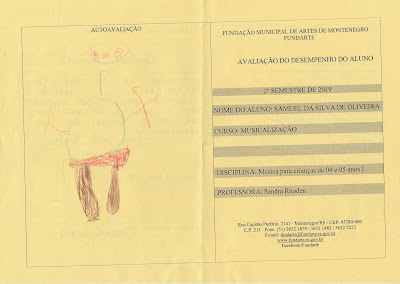 AUTOAVALIAÇÃO
FUNDAÇÃO MUNICIPAL DE ARTES DE MONTENEGRO
FUNDARTE
AVALIAÇÃO DO DESEMPENHO DO ALUNO
2º SEMESTRE DE 2019
NOME DO ALUNO: SAMUEL DA SILVA DE OLIVEIRA
CURSO: MUSICALIZAÇÃO
DISCIPLINA: Música para crianças de 04 e 05 anos I
PROFESSORA: Sandra Rhoden
Rua Capitão Porfírio, 2141 - Montenegro/RS - CEP: 95780-000
C.P. 211 Fone: (51) 3632 1879 / 3632 1483 / 3632 5223
E-mail: fundarte@fundarte.rs.gov.br
www.fundarte.rs.gov.br
Facebook/Fundarte